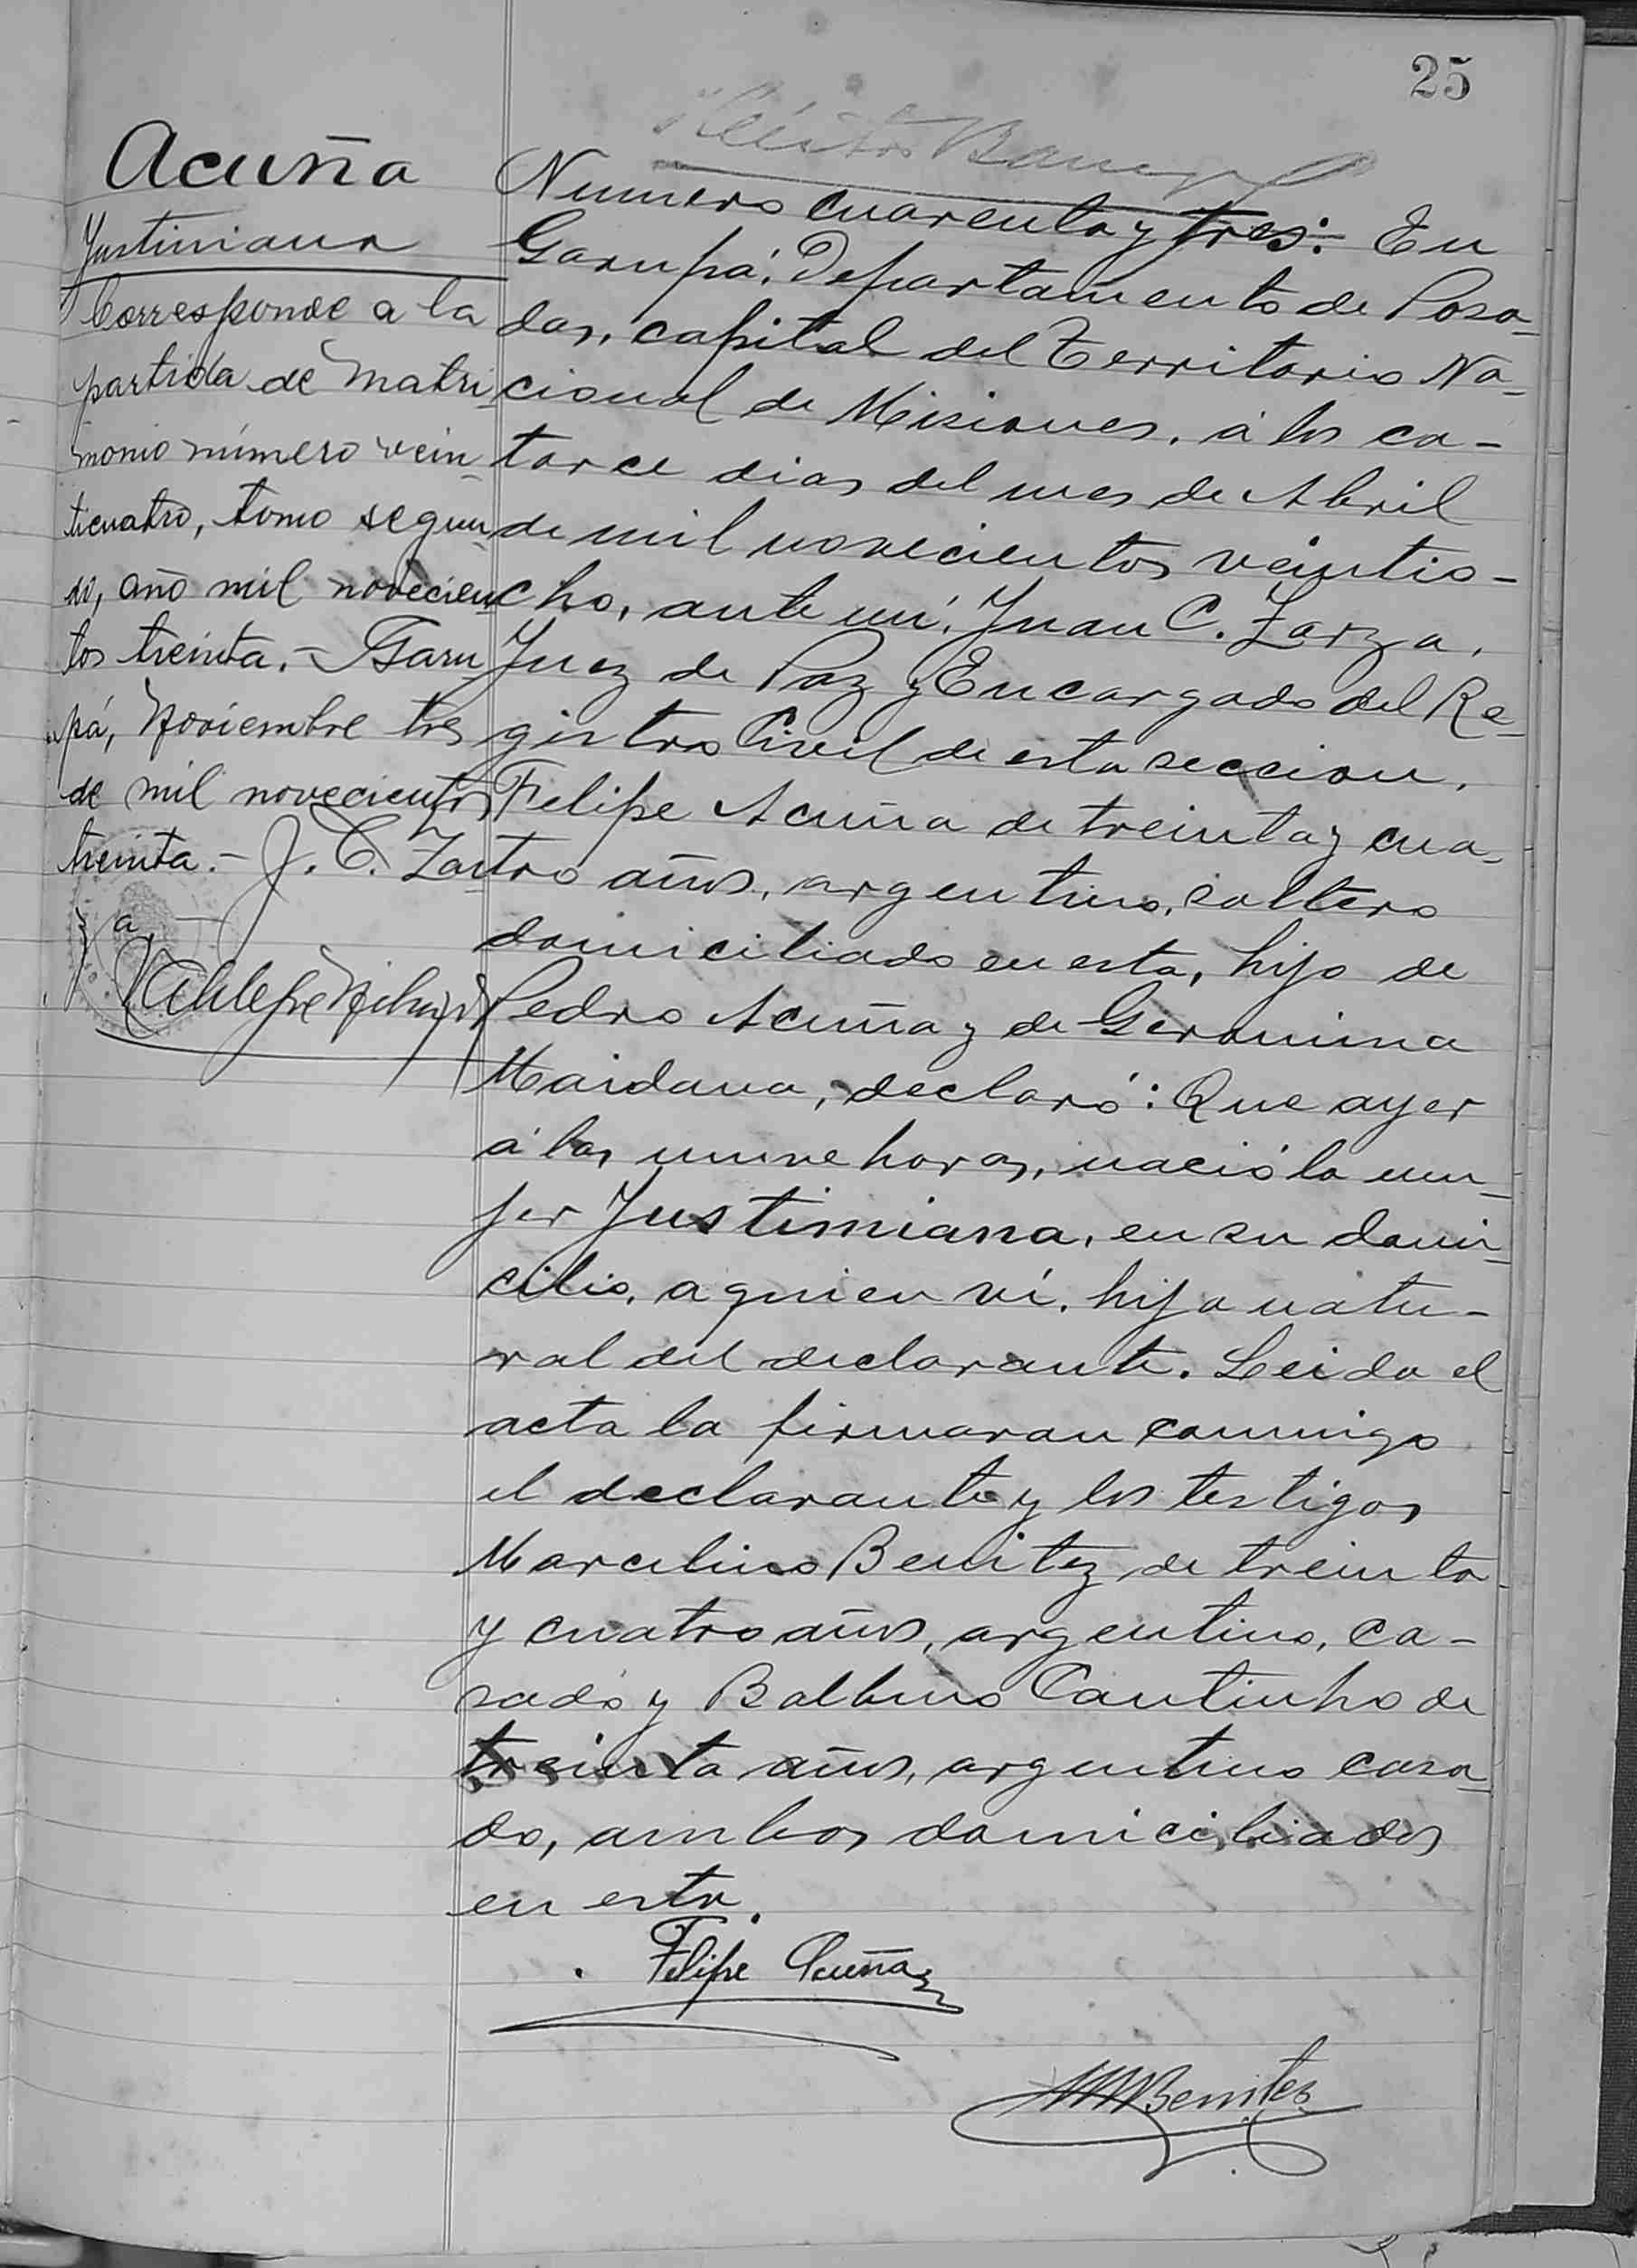 25
Acuña
Justiniana
Corresponde a la
partida de Matri-
monio número vein-
ticuatro, tomo segun-
do, año mil novecien-
tos treinta.- Garu-
pá, Noviembre tres
de mil novecientos
treinta.- J. C. Zar-
za
Numero cuarenta y tres:- En
Garupá, Departamento de Posa-
das, capital del Territorio Na-
cional de Misiones, á los ca-
torce dias del mes de Abril
de mil novecientos veintio-
cho, ante mi, Juan C. Zarza,
Juez de Paz y Encargado del Re-
gistro Civil de esta seccion,
Felipe Acuña de treinta y cua-
tro años, argentino, soltero
domiciliado en esta, hijo de
Pedro Acuña y de Geronima
Maidana, declaró: Que ayer
á las nueve horas, nació la mu-
jer Justiniana, en su domi-
cilio, a quien ví, hija natu-
ral del declarante. Leida el
acta la firmaran conmigo
el declarante y los testigos
Marcelino Benitez de treinta
y cuatro años, argentino, ca-
sado y Balbino Cantinho de
treinta años, argentino casa-
do, ambos domiciliados
en esta.
Felipe Acuña
M Benitez